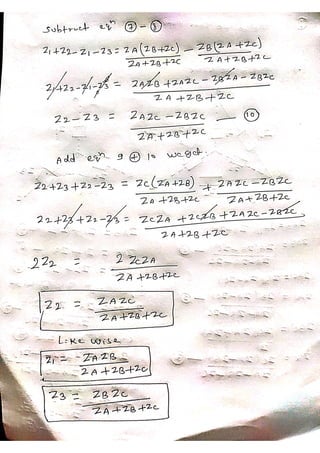 Subtruct eqn ⑦ - ⑧
Z1+Z2-Z1-Z3 = ZA(ZB+ZC)/ZA+ZB+ZC - ZB(ZA+ZC)/ZA+ZB+ZC
Z1+Z2-Z1-Z3 = ZAZB+ZAZC-ZBZA-ZBZC/ZA+ZB+ZC
Z2-Z3 = ZAZC-ZBZC/ZA+ZB+ZC — ⑩
Add eqn 9 ⊕ 10 we get
Z2+Z3+Z2-Z3 = ZC(ZA+ZB)/ZA+ZB+ZC + ZAZC-ZBZC/ZA+ZB+ZC
Z2+Z3+Z2-Z3 = ZCZA+ZCZB+ZAZC-ZBZC/ZA+ZB+ZC
2Z2 = 2 ZCZA/ZA+ZB+ZC
Z2 = ZAZC/ZA+ZB+ZC
Like wise
Z1 = ZAZB/ZA+ZB+ZC
Z3 = ZBZC/ZA+ZB+ZC